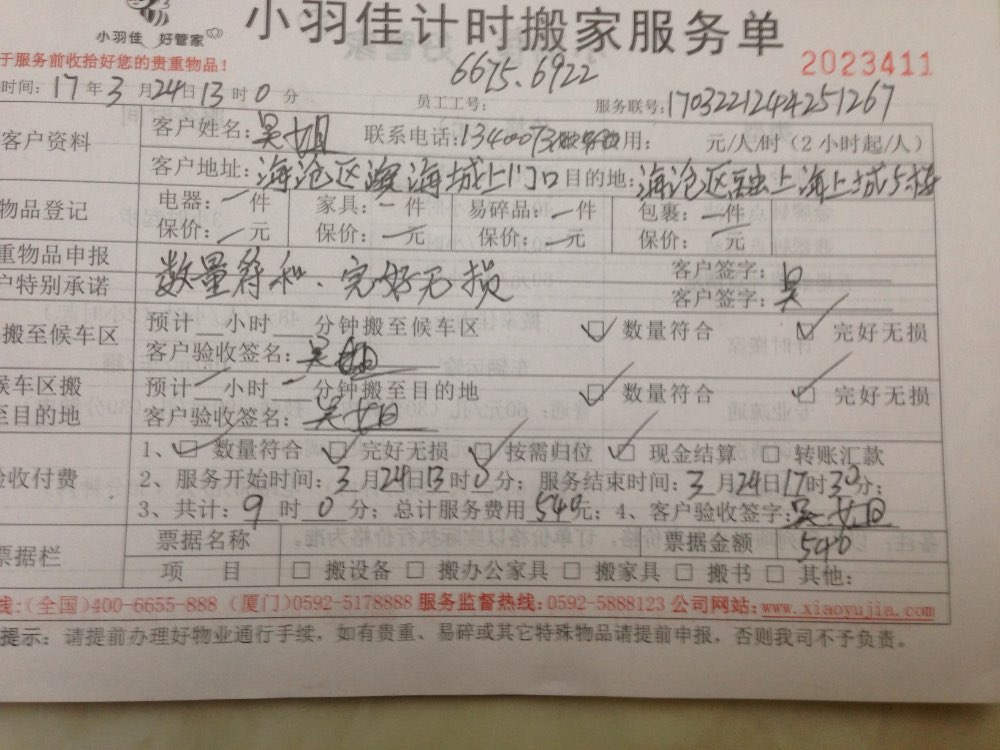 小羽佳 好管家
小羽佳计时搬家服务单
于服务前收拾好您的贵重物品！
6675.6922
2023411
时间：17年3月24日13时0分 员工工号： 服务联号：1703221244251267
客户资料 客户姓名：吴女姐 联系电话：1340073 用： 元/人/时（2小时起/人）
客户地址：海沧区滨海城上门口 目的地：海沧区 上海上城5栋
物品登记 电器：一件 家具：一件 易碎品：一件 包裹：一件
保价：一元 保价：一元 保价：一元 保价：一元
重物品申报 数量符和、完好无损 客户签字：
户特别承诺 客户签字：吴
搬至候车区 预计__小时__分钟搬至候车区 ☑ 数量符合 ☑ 完好无损
客户验收签名：吴女姐
候车区搬至目的地 预计一小时一分钟搬至目的地 ☑ 数量符合 ☑ 完好无损
客户验收签名：吴女姐
验收付费 1、☑ 数量符合 ☑ 完好无损 ☑ 按需归位 ☑ 现金结算 □ 转账汇款
2、服务开始时间：3月24日13时0分；服务结束时间：3月24日17时30分；
3、共计：9时0分；总计服务费用540元；4、客户验收签字：吴女姐
票据栏 票据名称 票据金额 540
项 目 □ 搬设备 □ 搬办公家具 □ 搬家具 □ 搬书 □ 其他：
线：(全国)400-6655-888 (厦门)0592-5178888 服务监督热线：0592-5888123 公司网站：www.xiaoyujia.com
提示：请提前办理好物业通行手续，如有贵重、易碎或其它特殊物品请提前申报，否则我司不予负责。